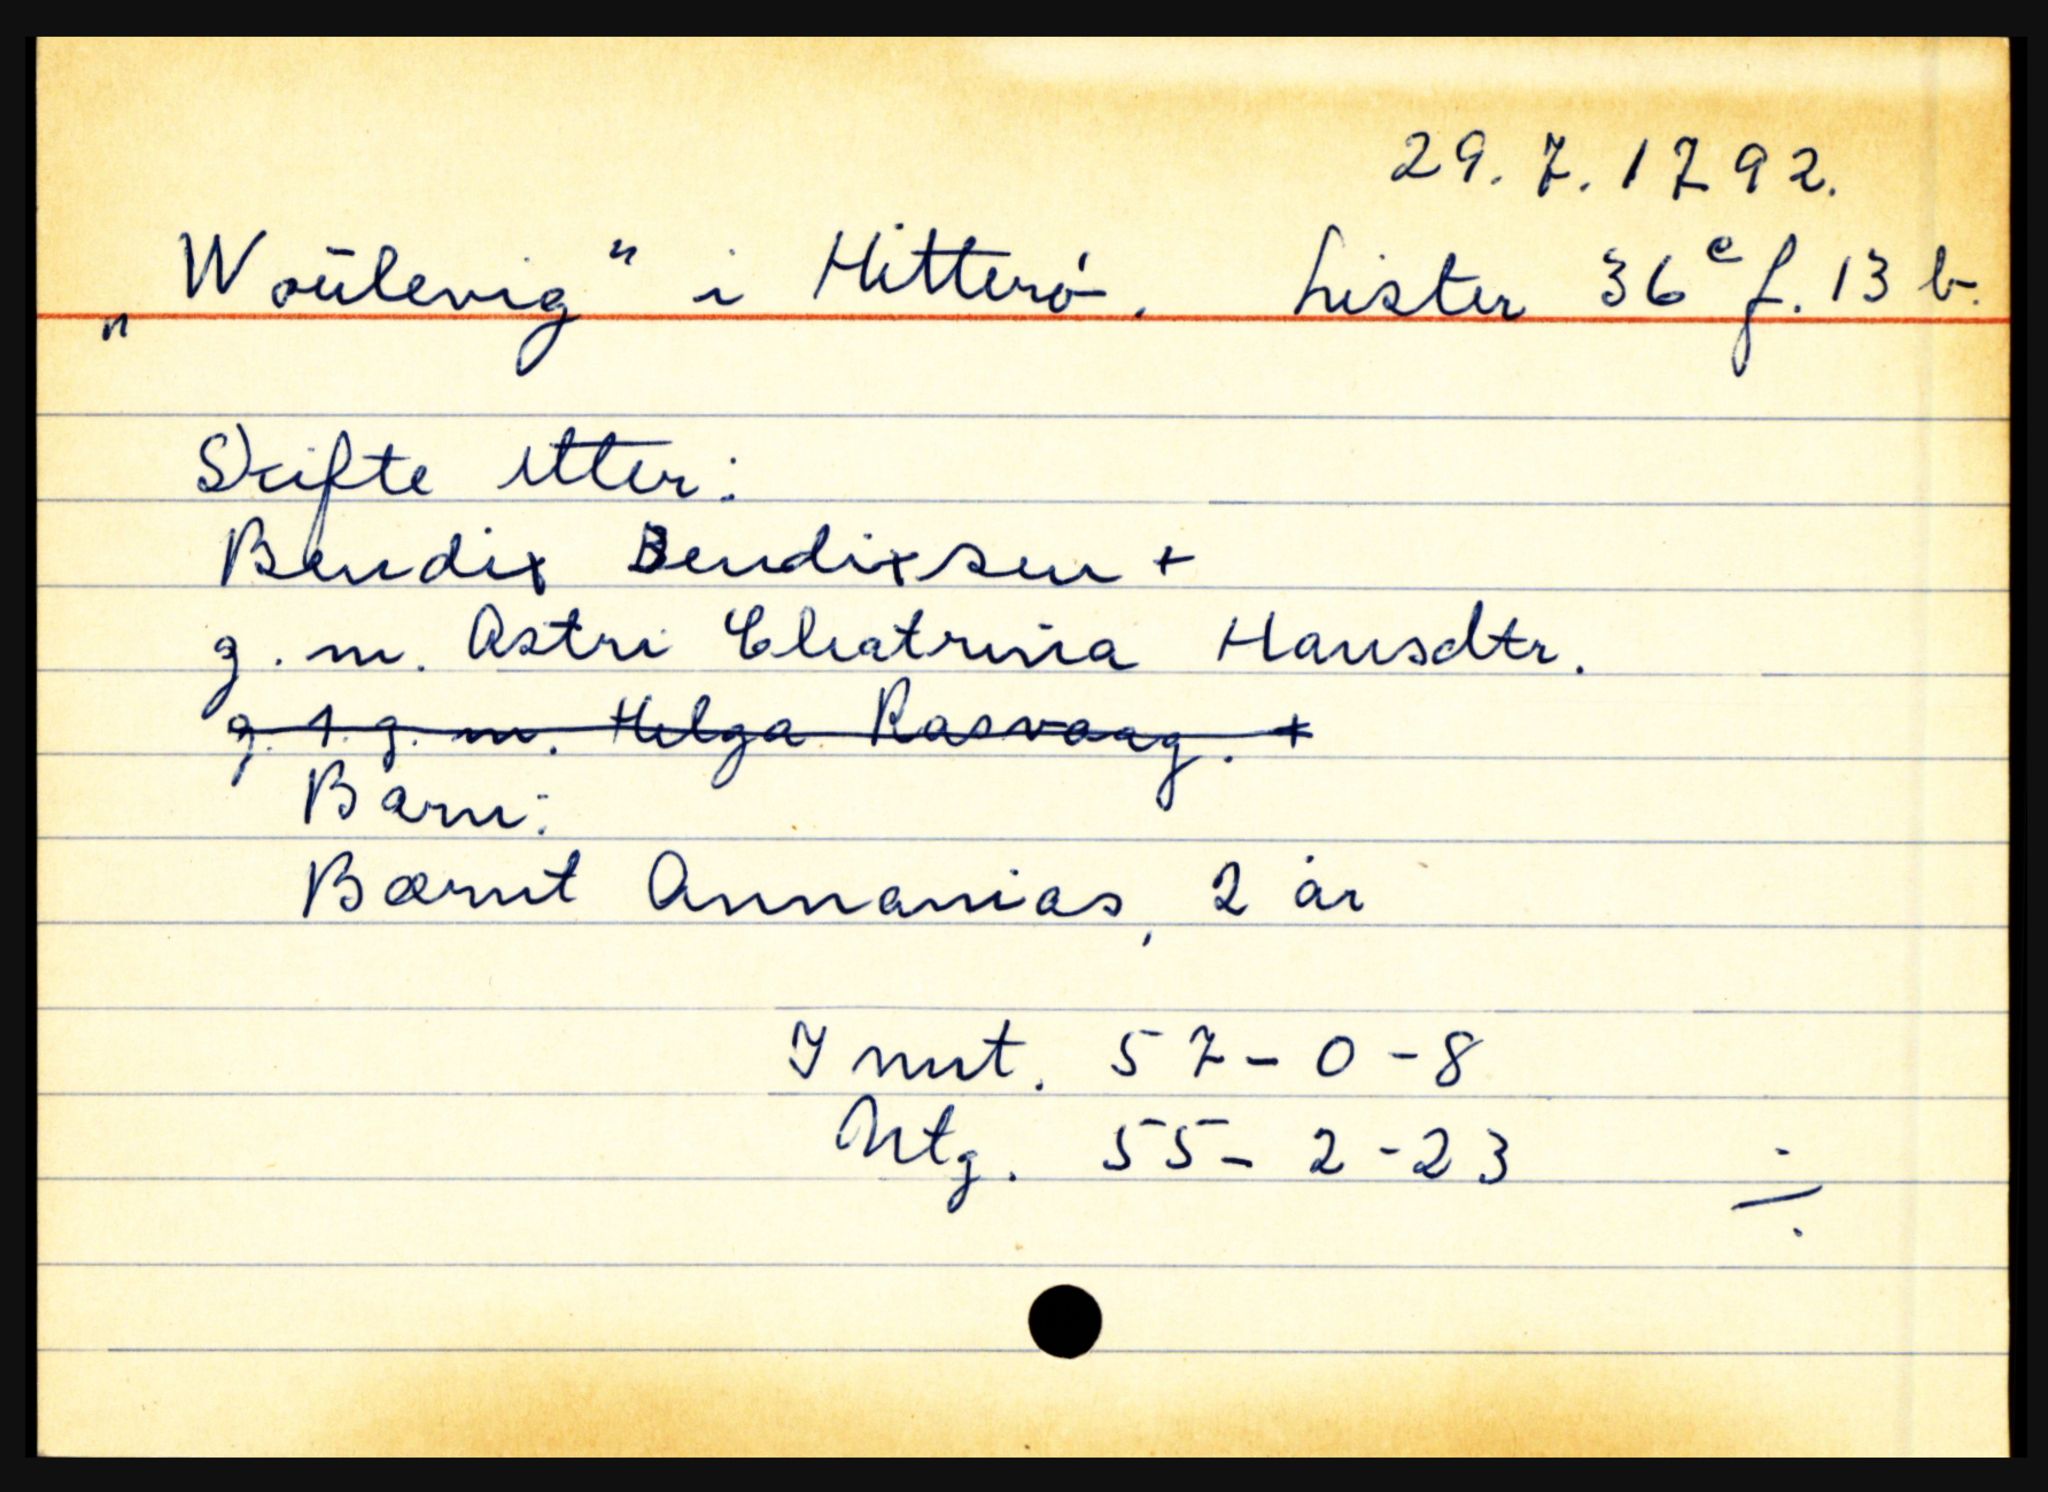 29.7.1792.
„Woülevig" i Hitterö. Lister 36ᵉ f. 13 b.
Skifte etter:
Bendix Bendixsen +
g. m. Astri Chatrina Hansdtr.
g. 1. g. m. Helga Rasvaag. +
Barn:
Bærnt Annanias, 2 år
Innt. 57-0-8
Utg. 55-2-23 ÷